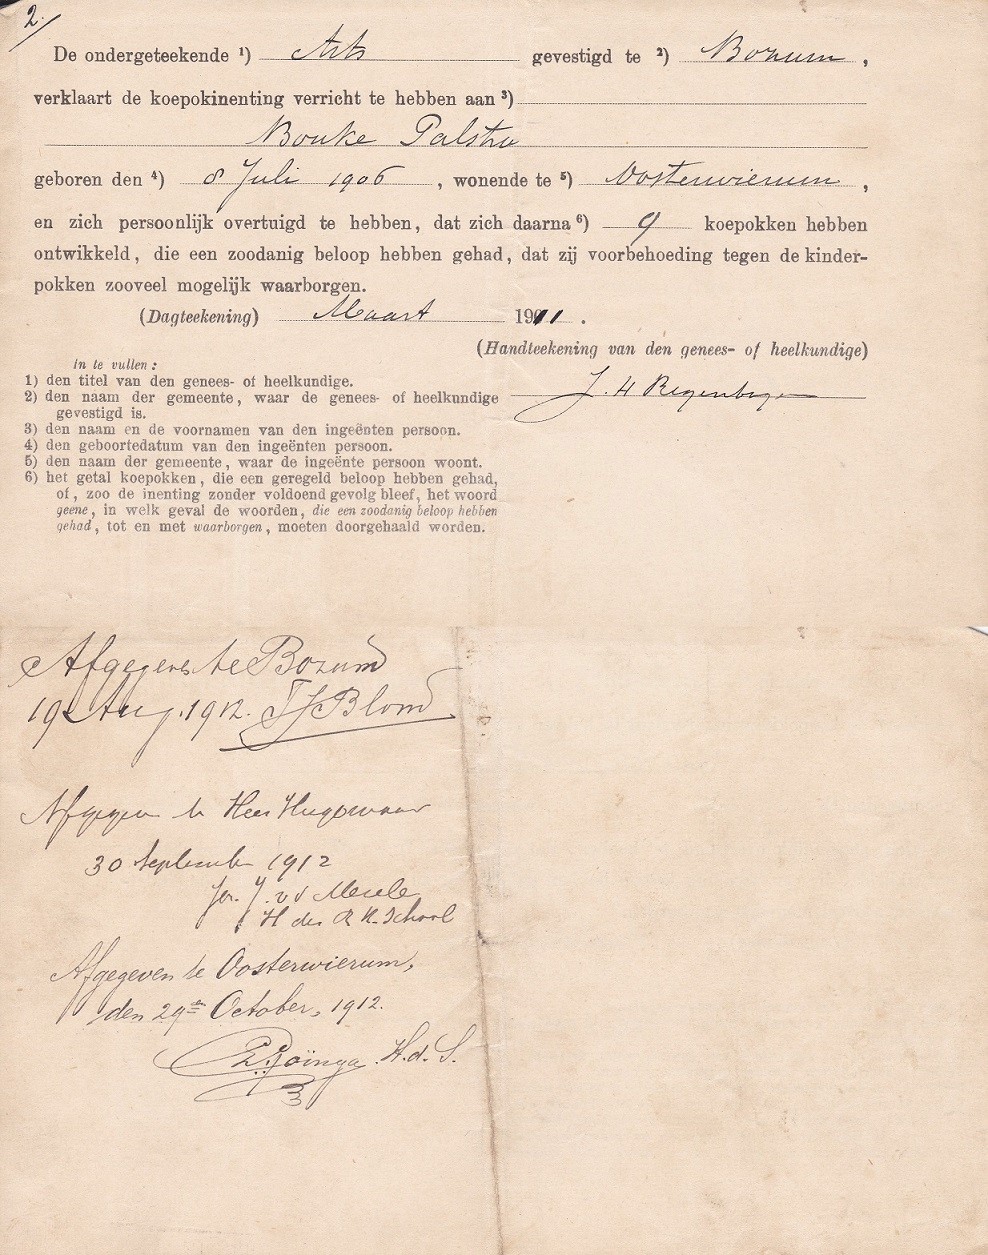 2.
De ondergeteekende ¹) Arts gevestigd te ²) Bozum,
verklaart de koepokinenting verricht te hebben aan ³)
Bouke Palstra
geboren den ⁴) 8 Juli 1906, wonende te ⁵) Oosterwierum,
en zich persoonlijk overtuigd te hebben, dat zich daarna ⁶) 9 koepokken hebben
ontwikkeld, die een zoodanig beloop hebben gehad, dat zij voorbehoeding tegen de kinder-
pokken zooveel mogelijk waarborgen.
(Dagteekening) Maart 1911.
(Handteekening van den genees- of heelkundige)
J. H
In te vullen:
1) den titel van den genees- of heelkundige.
2) den naam der gemeente, waar de genees- of heelkundige
gevestigd is.
3) den naam en de voornamen van den ingeënten persoon.
4) den geboortedatum van den ingeënten persoon.
5) den naam der gemeente, waar de ingeënte persoon woont.
6) het getal koepokken, die een geregeld beloop hebben gehad,
of, zoo de inenting zonder voldoend gevolg bleef, het woord
geene, in welk geval de woorden, die een zoodanig beloop hebben
gehad, tot en met waarborgen, moeten doorgehaald worden.
Afgegeven te Bozum
19 Aug. 1912. Blom
Afgegeven te Heer Hugowaar
30 September 1912
J. v d
H der R K. School
Afgegeven te Oosterwierum,
den 29en October, 1912.
H.d.S.